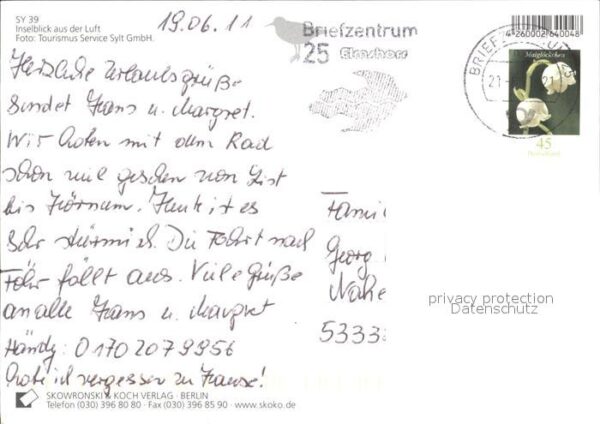 SY 39
Inselblick aus der Luft
Foto: Tourismus Service Sylt GmbH.
19.06.11
Briefzentrum
25 Elmshorn
4 260002 640048
BRIEFZENTRUM
21
Maiglöckchen
45
Deutschland
Herzliche Urlaubsgrüße
sendet Hans u. Margret.
Wir haben mit dem Rad
schon viel gesehen von List
bis Hörnum. Heute ist es
sehr stürmisch. Die Fahrt nach
Föhr fällt aus. Viele Grüße
an alle Hans u. Margret
Handy: 01702079956
habe ich vergessen zu Hause!
Fami
Georg
Nahe
5333
privacy protection
Datenschutz
SKOWRONSKI & KOCH VERLAG · BERLIN
Telefon (030) 396 80 80 · Fax (030) 396 85 90 · www.skoko.de